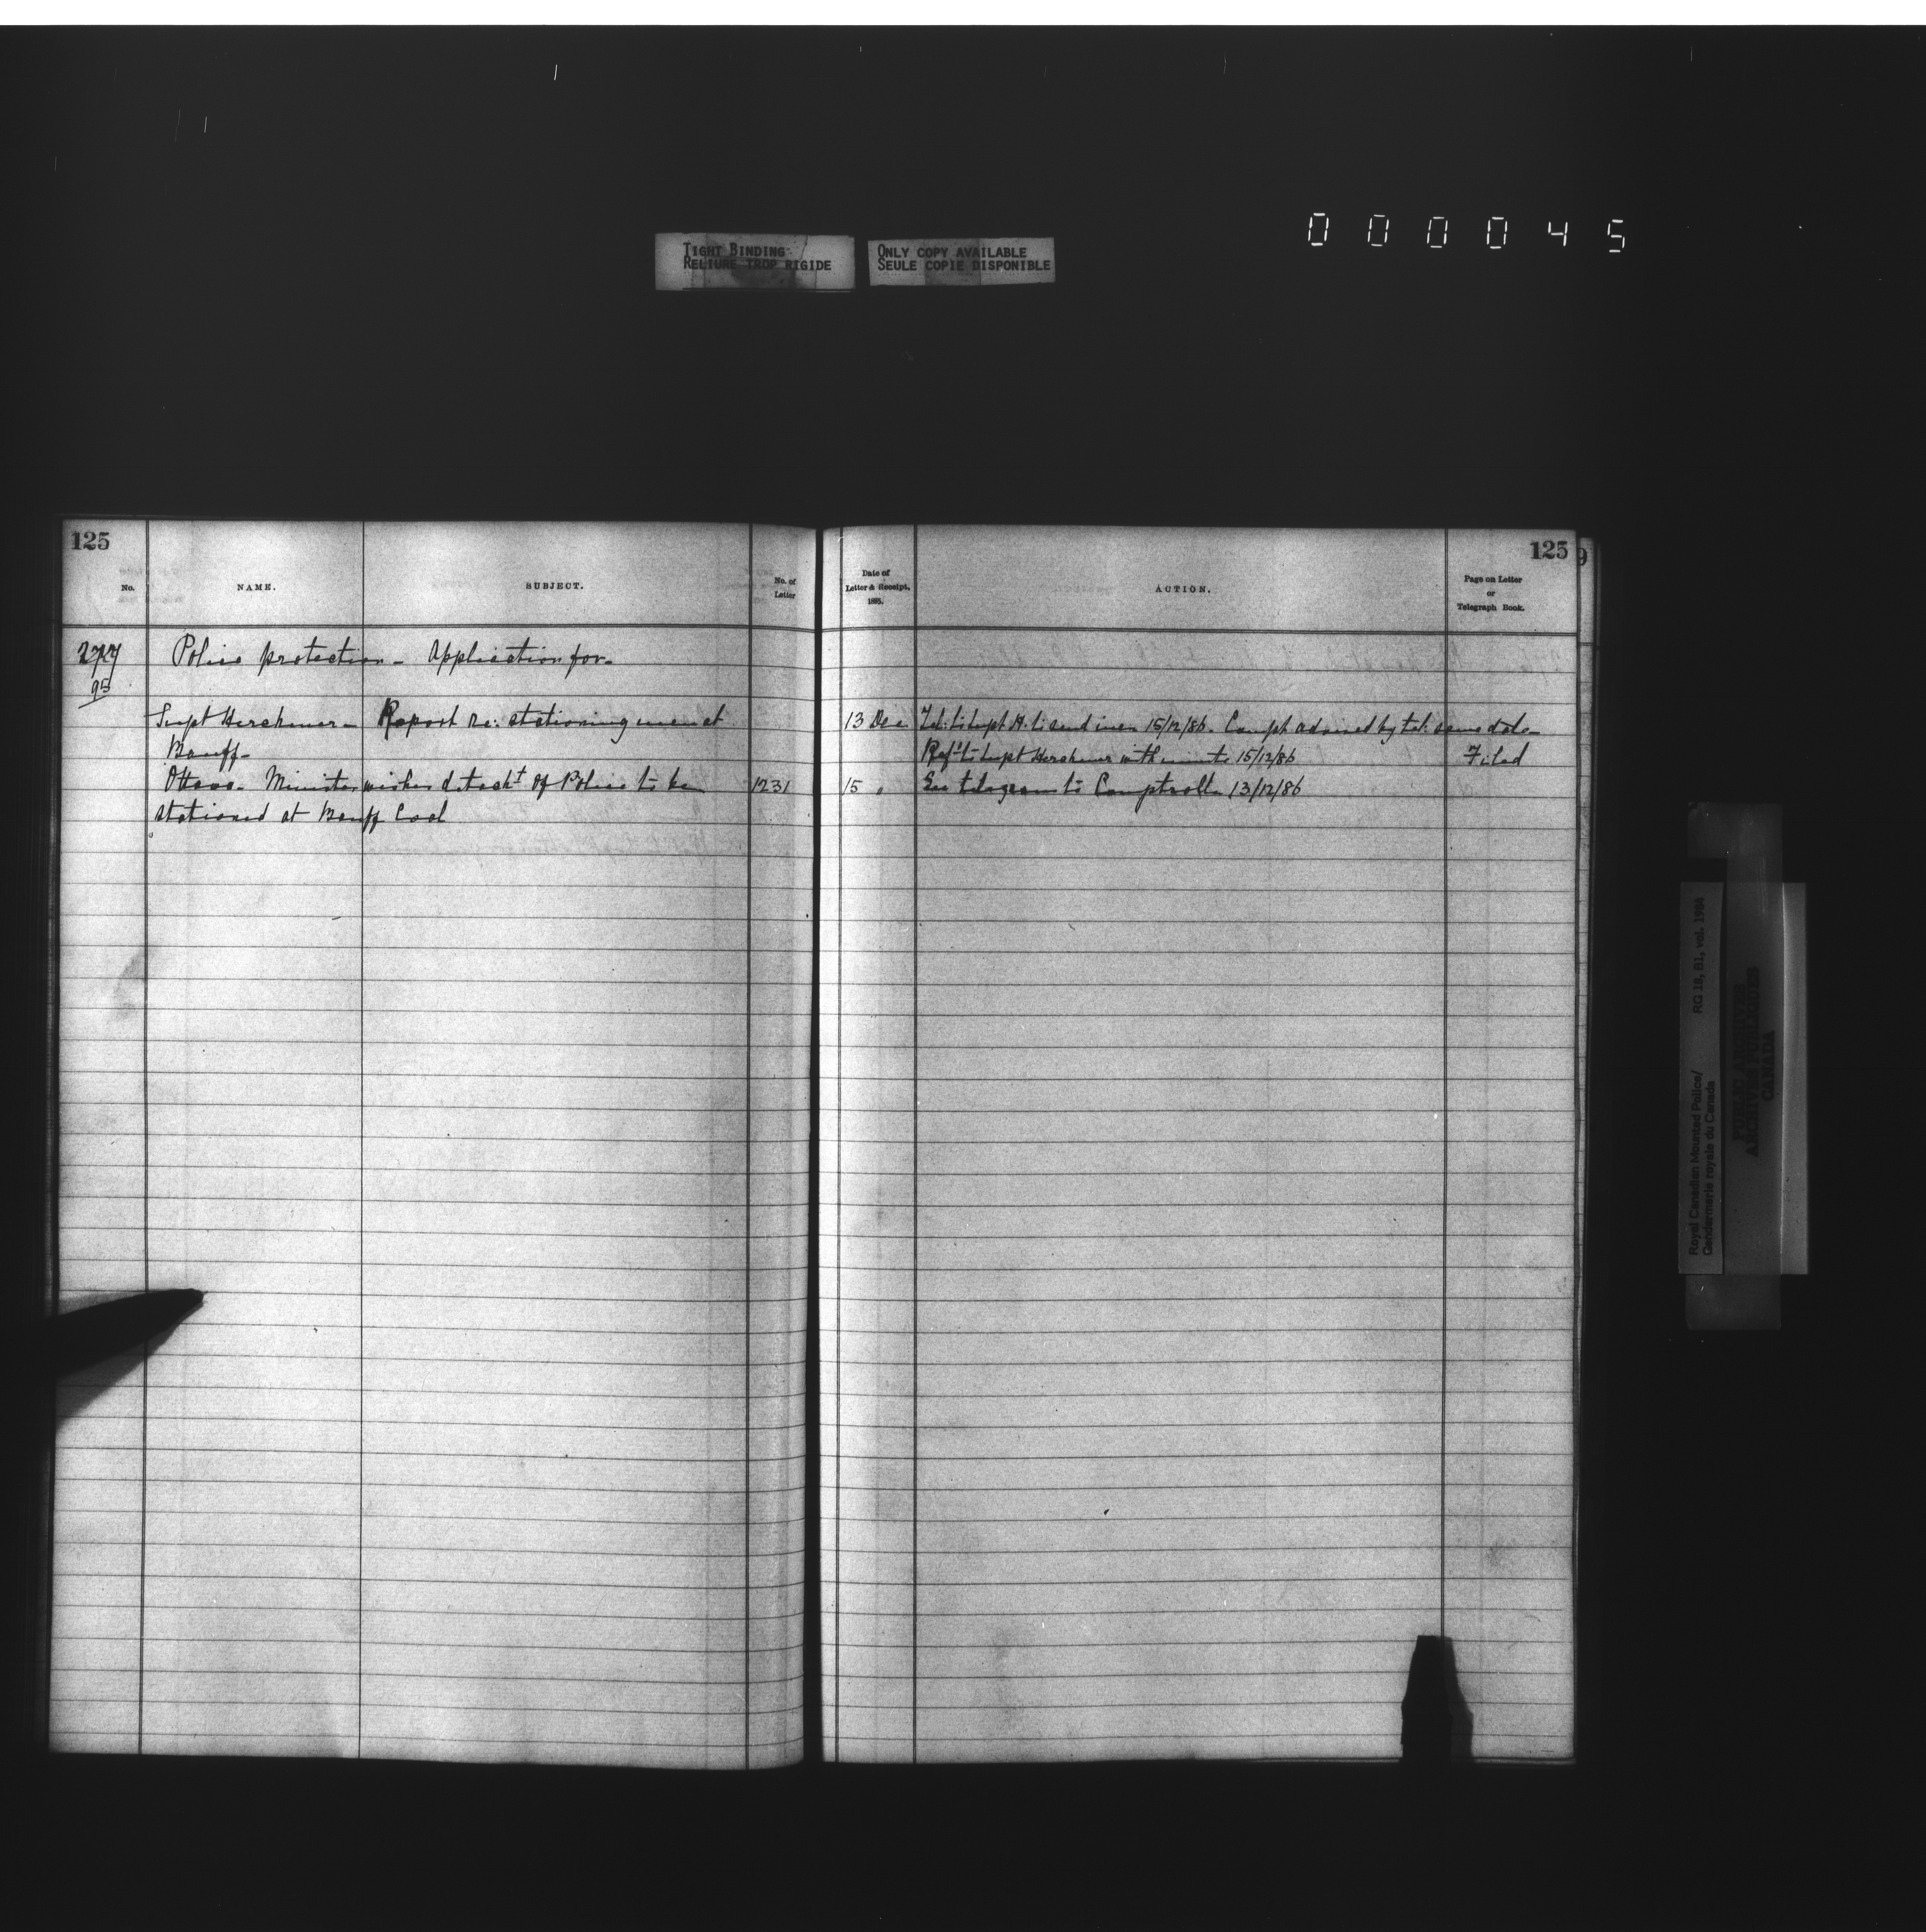 000045
TIGHT BINDING
RELIURE TROP RIGIDE
ONLY COPY AVAILABLE
SEULE COPIE DISPONIBLE
125
No.
NAME.
SUBJECT.
No. of
Letter
277
95
Police protection - Application for -
Supt Herchmer - Report re: stationing men at
Banff -
Ottawa - Minister wishes detacht of Police to be 1231
stationed at Banff
125
9
Date of
Letter & Receipt.
1885.
ACTION.
Page on Letter
or
Telegraph Book.
13 Dec Tel: to Supt H. to send men 15/12/86. Compt advised by tel: same date
Ref'd to Supt Herchmer with minute 15/12/86 Filed
15 " See telegram to Comptroller 13/12/86
Royal Canadian Mounted Police/
Gendarmerie royale du Canada
RG 18, B1, vol. 1984
PUBLIC ARCHIVES
ARCHIVES PUBLIQUES
CANADA